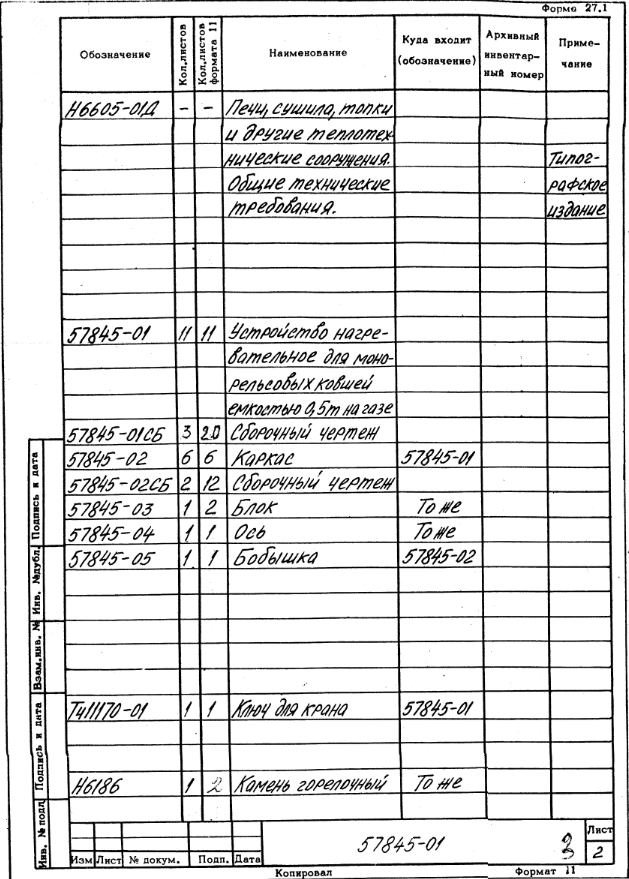 Форма 27.1
Обозначение Кол.листов Кол.листов формата 11 Наименование Куда входит (обозначение) Архивный инвентарный номер Примечание
Н6605-01Д - - Печи, сушила, топки
и другие теплотех
нические сооружения. Типог-
Общие технические рафское
требования. издание
57845-01 11 11 Устройство нагре-
вательное для моно-
рельсовых ковшей
емкостью 0,5т на газе
57845-01СБ 3 20 Сборочный чертеж
57845-02 6 6 Каркас 57845-01
57845-02СБ 2 12 Сборочный чертеж
57845-03 1 2 Блок То же
57845-04 1 1 Ось То же
57845-05 1 1 Бобышка 57845-02
Тч11170-01 1 1 Ключ для крана 57845-01
Н6186 1 2 Камень горелочный То же
Инв. № подл. Подпись и дата Взам.инв. № Инв. №дубл. Подпись и дата
57845-01 3 Лист
2
Изм Лист № докум. Подп. Дата
Копировал Формат 11